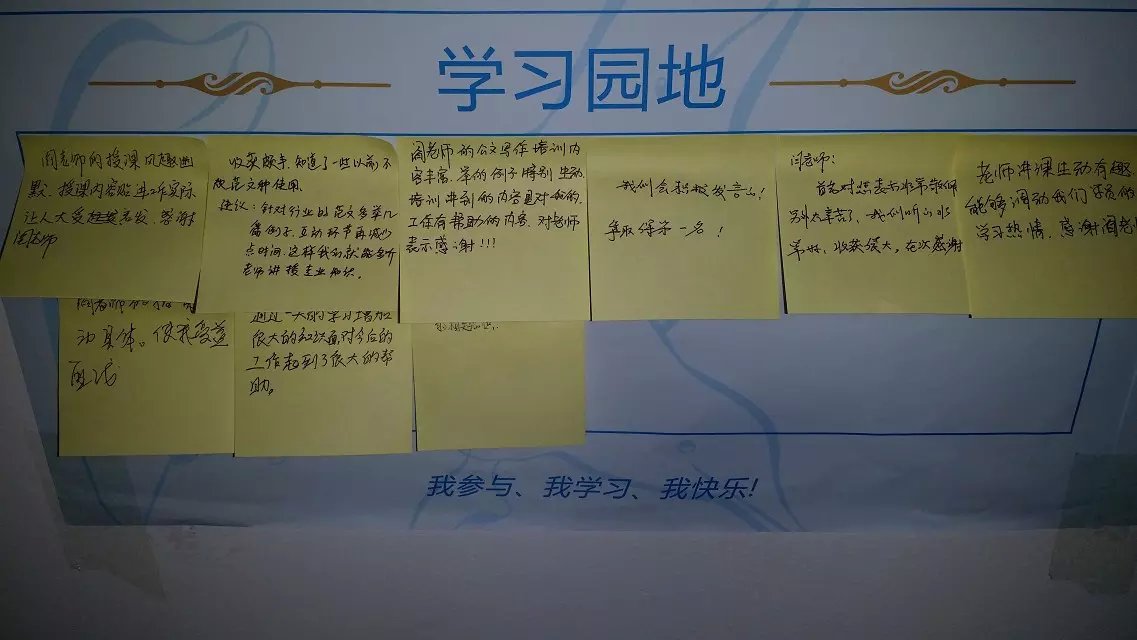 学习园地
闫老师的授课风趣幽
默、授课内容贴近工作实际
让人大受启发、感谢
闫老师
收获颇丰,知道了一些以前不
规范文种使用。
建议:针对行业的范文多举几
篇例子,互动环节再减少
点时间,这样我们就能多听
老师讲授专业知识。
闫老师的公文写作培训内
容丰富、举的例子特别生动
培训讲到的内容是对我的
工作有帮助的内容、对老师
表示感谢!!!
我们会积极发言的!
争取得第一名!
闫老师:
首先对您表示非常感谢
您太辛苦了,我们听的
收获很大,在次感谢
老师讲课生动有趣
能够调动我们学员的
学习热情,感谢闫老
动具体。使我受益
匪浅
通过一天的学习增加
很大的知识面,对今后的
工作起到了很大的帮
助。
我参与、我学习、我快乐!